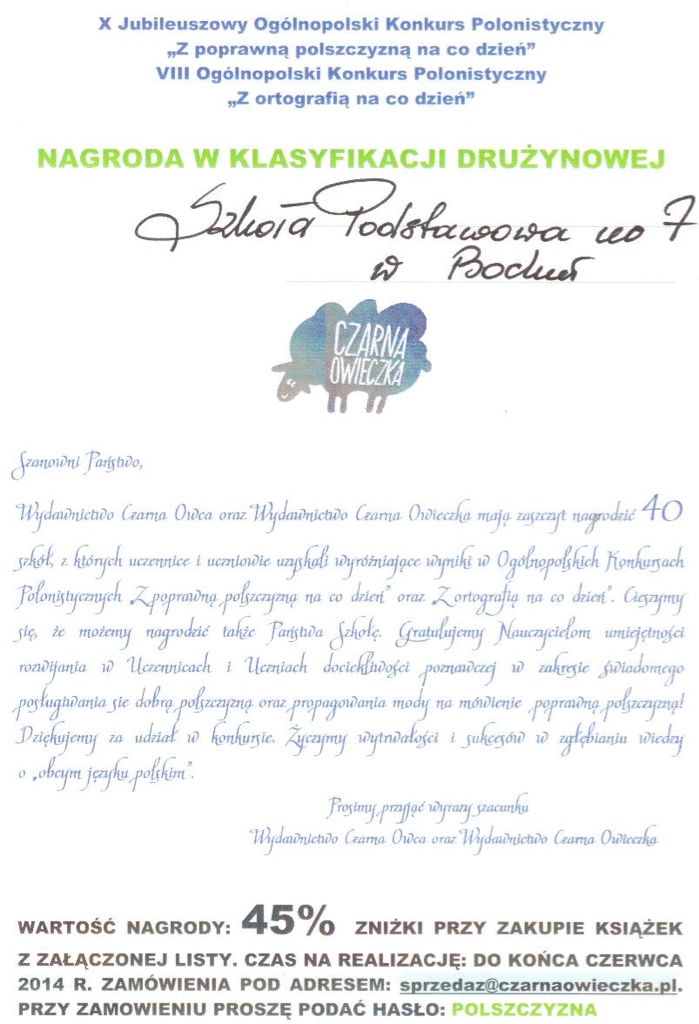 X Jubileuszowy Ogólnopolski Konkurs Polonistyczny
„Z poprawną polszczyzną na co dzień”
VIII Ogólnopolski Konkurs Polonistyczny
„Z ortografią na co dzień”
NAGRODA W KLASYFIKACJI DRUŻYNOWEJ
Szkoła Podstawowa nr 7
w Bochni
CZARNA
OWIECZKA
Szanowni Państwo,
Wydawnictwo Czarna Owca oraz Wydawnictwo Czarna Owieczka mają zaszczyt nagrodzić 40
szkół, z których uczennice i uczniowie uzyskali wyróżniające wyniki w Ogólnopolskich Konkursach
Polonistycznych „Z poprawną polszczyzną na co dzień” oraz „Z ortografią na co dzień”. Cieszymy
się, że możemy nagrodzić także Państwa Szkołę. Gratulujemy Nauczycielom umiejętności
rozwijania w Uczennicach i Uczniach dociekliwości poznawczej w zakresie świadomego
posługiwania sie dobrą polszczyzną oraz propagowania mody na mówienie poprawną polszczyzną!
Dziękujemy za udział w konkursie. Życzymy wytrwałości i sukcesów w zgłębianiu wiedzy
o „obcym języku polskim”.
Prosimy przyjąć wyrazy szacunku
Wydawnictwo Czarna Owca oraz Wydawnictwo Czarna Owieczka
WARTOŚĆ NAGRODY: 45% ZNIŻKI PRZY ZAKUPIE KSIĄŻEK
Z ZAŁĄCZONEJ LISTY. CZAS NA REALIZACJĘ: DO KOŃCA CZERWCA
2014 R. ZAMÓWIENIA POD ADRESEM: sprzedaz@czarnaowieczka.pl.
PRZY ZAMOWIENIU PROSZĘ PODAĆ HASŁO: POLSZCZYZNA